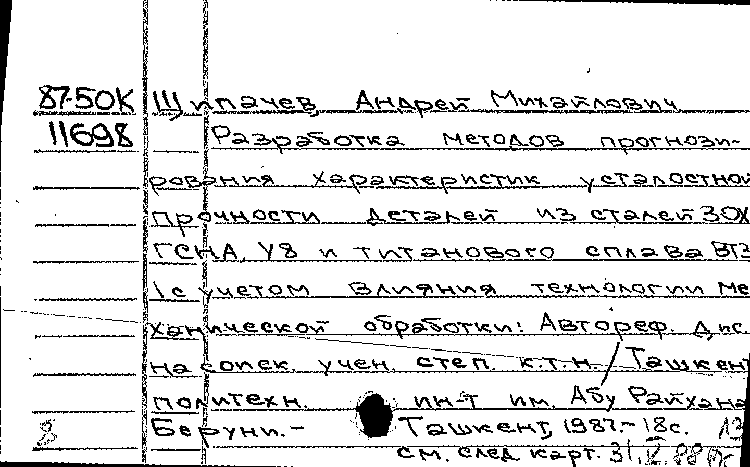 87-50К Щипачев, Андрей Михайлович
11698 Разработка методов прогнози-
рования характеристик усталостной
прочности деталей из сталей 30Х
ГСНА, У8 и титанового сплава ВТ3
1с учетом влияния технологии ме
ханической обработки: Автореф. дис.
на соиск. учен. степ. к.т.н. / Ташкент
политехн. ин-т им. Абу Райхана
Беруни. - Ташкент, 1987. - 18 с.
см. след. карт.